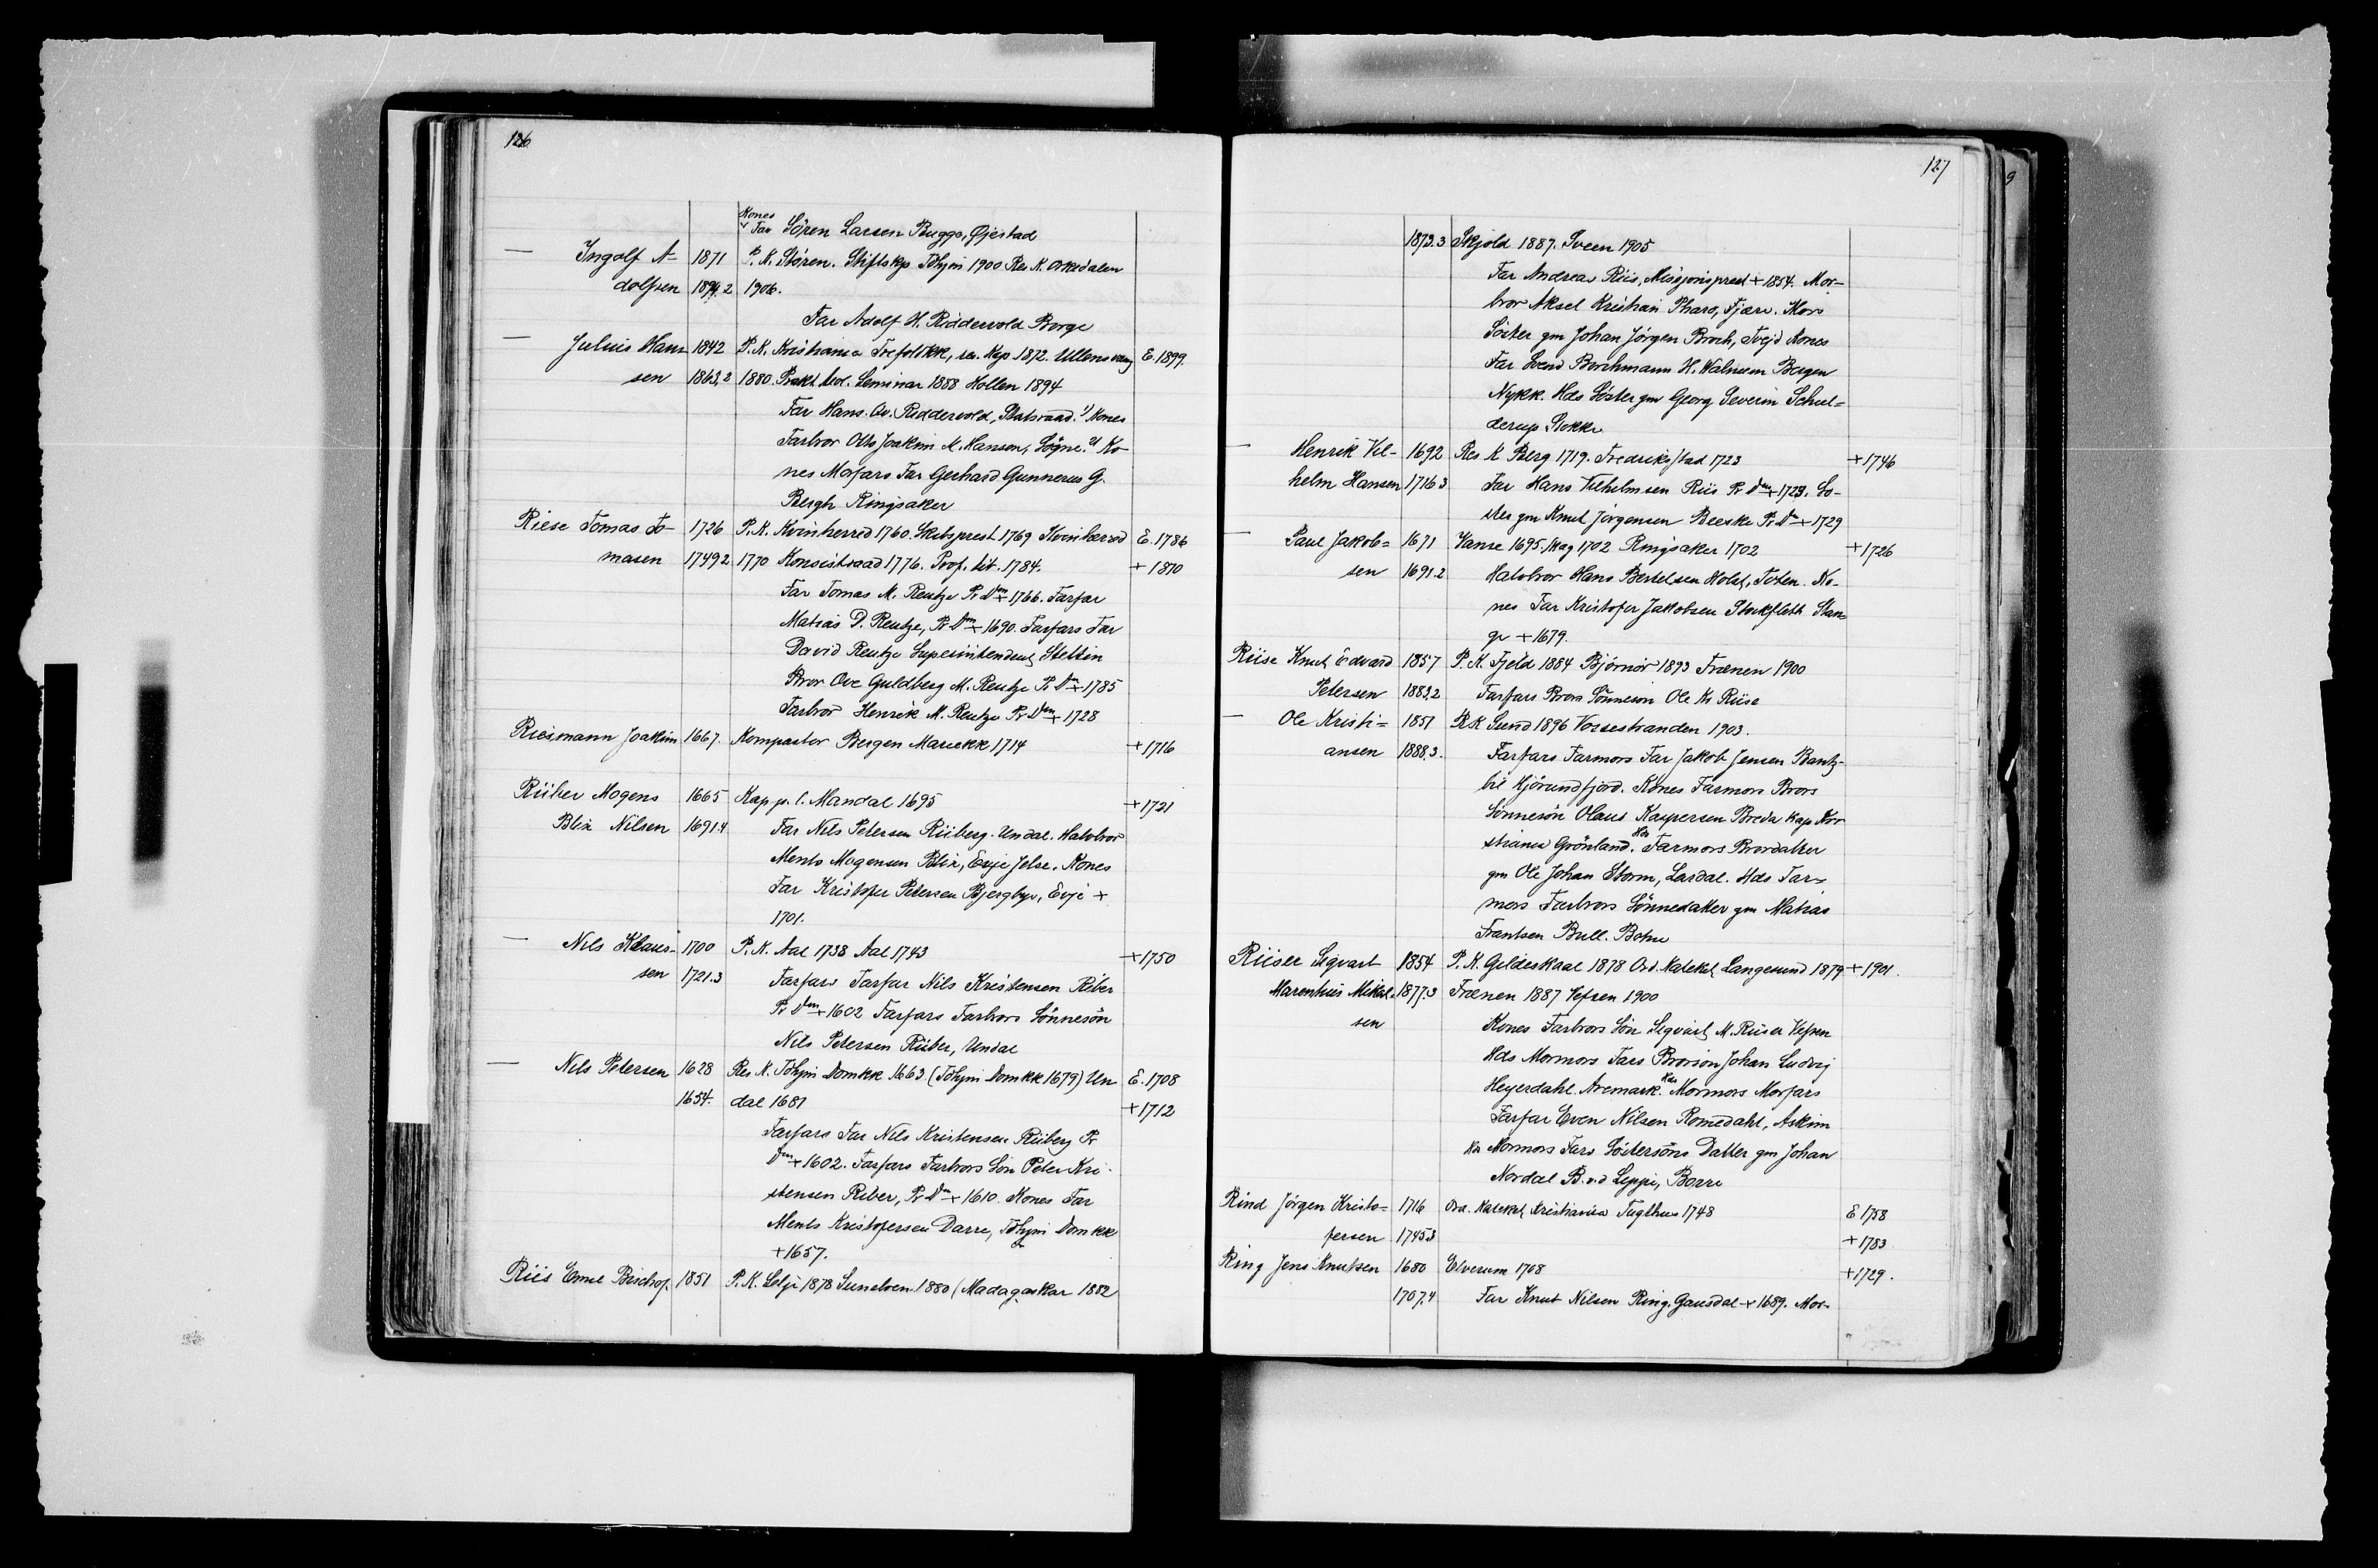 126
Kones
Far Sören Larsen Bugge, Öjestad
— Ingolf A- 1871 P. K. Stören. Stiftskp Tóhjm 1900 Res K. Orkedalen
dolfsen 1894.2 1906.
Far Adolf H. Riddervold Borge
— Julius Han- 1842 P. K. Kristiania Trefoldkk, res. Kap 1872. Ullensvang E. 1899.
sen 1863,2 1880. Prakt teol. Seminar 1888 Hollen 1894
Far Hans Riddervold, Statsraad. 1) Kones
Farbror Otto Joakim M. Hansen, Sögne. 2) Ko-
nes Morfars Far Gerhard Gunnerus G.
Bergh Ringsaker
Riese Tomas To- 1726 P. K. Kvinherred 1760. Skibsprest 1769 Kvinherred E. 1786
masen 1749 2 1770 Konsistraad 1776. Prof. tit. 1784. + 1810
Far Tomas M. Reutze Pr Dm + 1766. Farfar
Matias D. Reutze, Pr Dm + 1690. Farfars Far
David Reutze Superintendent Stettin
Bror Ove Guldberg M. Reutze Pr Dm + 1785
Farbror Henrik M. Reutze Pr Dm + 1728
Riesmann Joakim 1667. Kompastor Bergen Mariekk 1714 + 1716
Riiber Mogens 1665 Kap p. l. Mandal 1695 + 1721
Blix Nilsen 1691.4 Far Nils Petersen Riiberg. Undal. Halvbror
Ments Mogensen Blix, Evje Jelse. Kones
Far Kristofer Petersen Bjergbye, Evje +
1701.
— Nils Klaus- 1700 P. K. Aal 1738 Aal 1743 + 1750
sen 1721.3 Farfars Farfar Nils Kristensen Riber
Pr Dm + 1602 Farfars Farbrors Sönnesön
Nils Petersen Riiber, Undal
— Nils Petersen 1628 Res K. Tóhjm Domkk 1663. (Tóhjm Domkk 1679) Un E. 1708
1654. dal 1681 + 1712
Farfars Far Nils Kristensen Riiberg Pr
Dm + 1602. Farfars Farbrors Sön Peter Kri-
stensen Riber, Pr Dm + 1610. Kones Far
Ments Kristofersen Darre, Tóhjm Domkk
+ 1657.
Riis Emil Bischof. 1851 P. K. Selje 1878 Sunelven 1880 (Madagaskar 1882
127
1873.3 Skjold 1887. Sveen 1905
Far Andreas Riis, Missjonsprest + 1854. Mor-
bror Aksel Kristian Pharo, Fjære. Mors
Söster gm Johan Jörgen Broch, Tvejd Kones
Far Svend Borchmann H. Walnum Bergen
Nykk. Hds Söster gm Georg Severin Schul-
derup Stokke
— Henrik Vil- 1692 Res K Berg 1719. Fredriksstad 1723 + 1746
helm Hansen 1716 3 Far Hans Vilhelmsen Riis Pr Dm + 1723. Sö-
ster gm Knut Jörgensen Beeske Pr Dm + 1729
— Paul Jakob- 1671 Vanse 1695. Mag 1702 Ringsaker 1702 + 1726
sen 1691.2 Halvbror Hans Bertelsen Holst, Toten. Ko-
nes Far Kristofer Jakobsen Stockfleth Stan-
ge + 1679.
Riise Knut Edvard 1857 P. K. Fjeld 1884 Björnör 1893 Frænen 1900
Petersen 1883,2 Farfars Brors Sönnesön Ole Kr Riise
— Ole Kristi- 1851 P K Sund 1896 Vossestranden 1903.
ansen 1888,3. Farfars Farmors Far Jakob Jensen Bantz-
bil Hjörundfjord. Kones Farmors Brors
Sönnesön Olaus Kaspersen Breda Kap Kri-
stiania Grönland. Hds Farmors Brordatter
gm Ole Johan Storm, Lardal. Hds Far-
mors Farbrors Sönnedatter gm Matias
Frantsen Bull. Botne
Riiser Sigvart 1854 P. K. Gildeskaal 1878 Ord. Kateket Langesund 1879 + 1901.
Marentius Mikal- 1877.3 Frænen 1887 Vefsen 1900
sen Kones Farbrors Sön Sigvart M. Riiser Vefsen
Hds Mormors Fars Brorsön Johan Ludvig
Heyerdahl. Aremark. Hds Mormors Morfars
Farfar Even Nilsen Romedahl, Askim
Hds Mormors Fars Söstersöns Datter gm Johan
Nordal B. v.d Lippe, Borre
Rind Jörgen Kristo- 1716 Ord. Kateket Kristiania Tugthus 1748 E 1758
fersen 1745.3 + 1783
Ring Jens Knutsen 1680 Elverum 1708 + 1729.
1707.4 Far Knut Nilsen Ring. Gausdal + 1689. Mor-